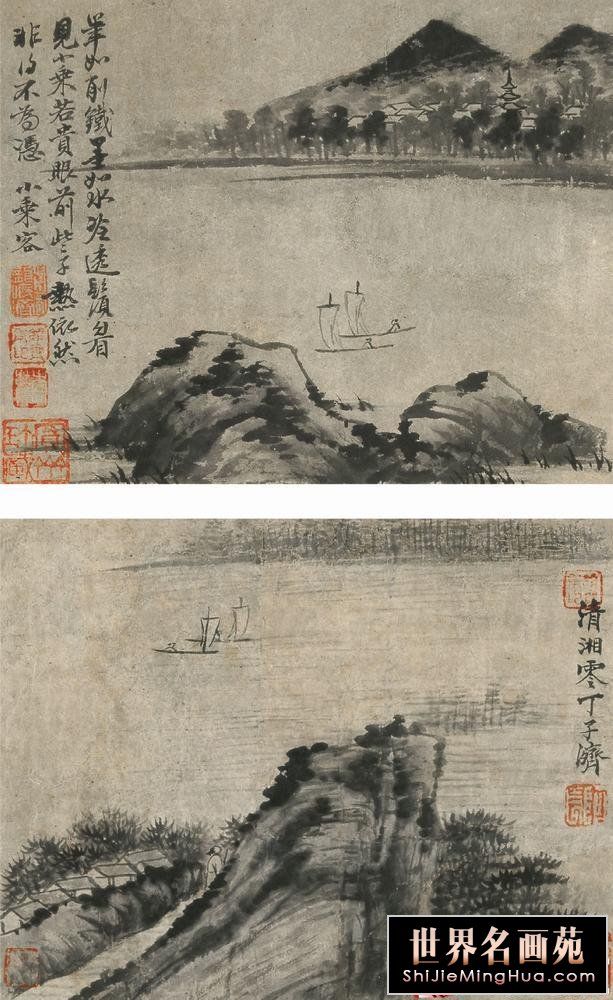 筆如削鐵墨如冰冷透鬚眉
見小乘若貴眼前些子熱依然
非得不為憑 小乘客
清湘零丁子濟
世界名画苑
ShiJieMingHua.com